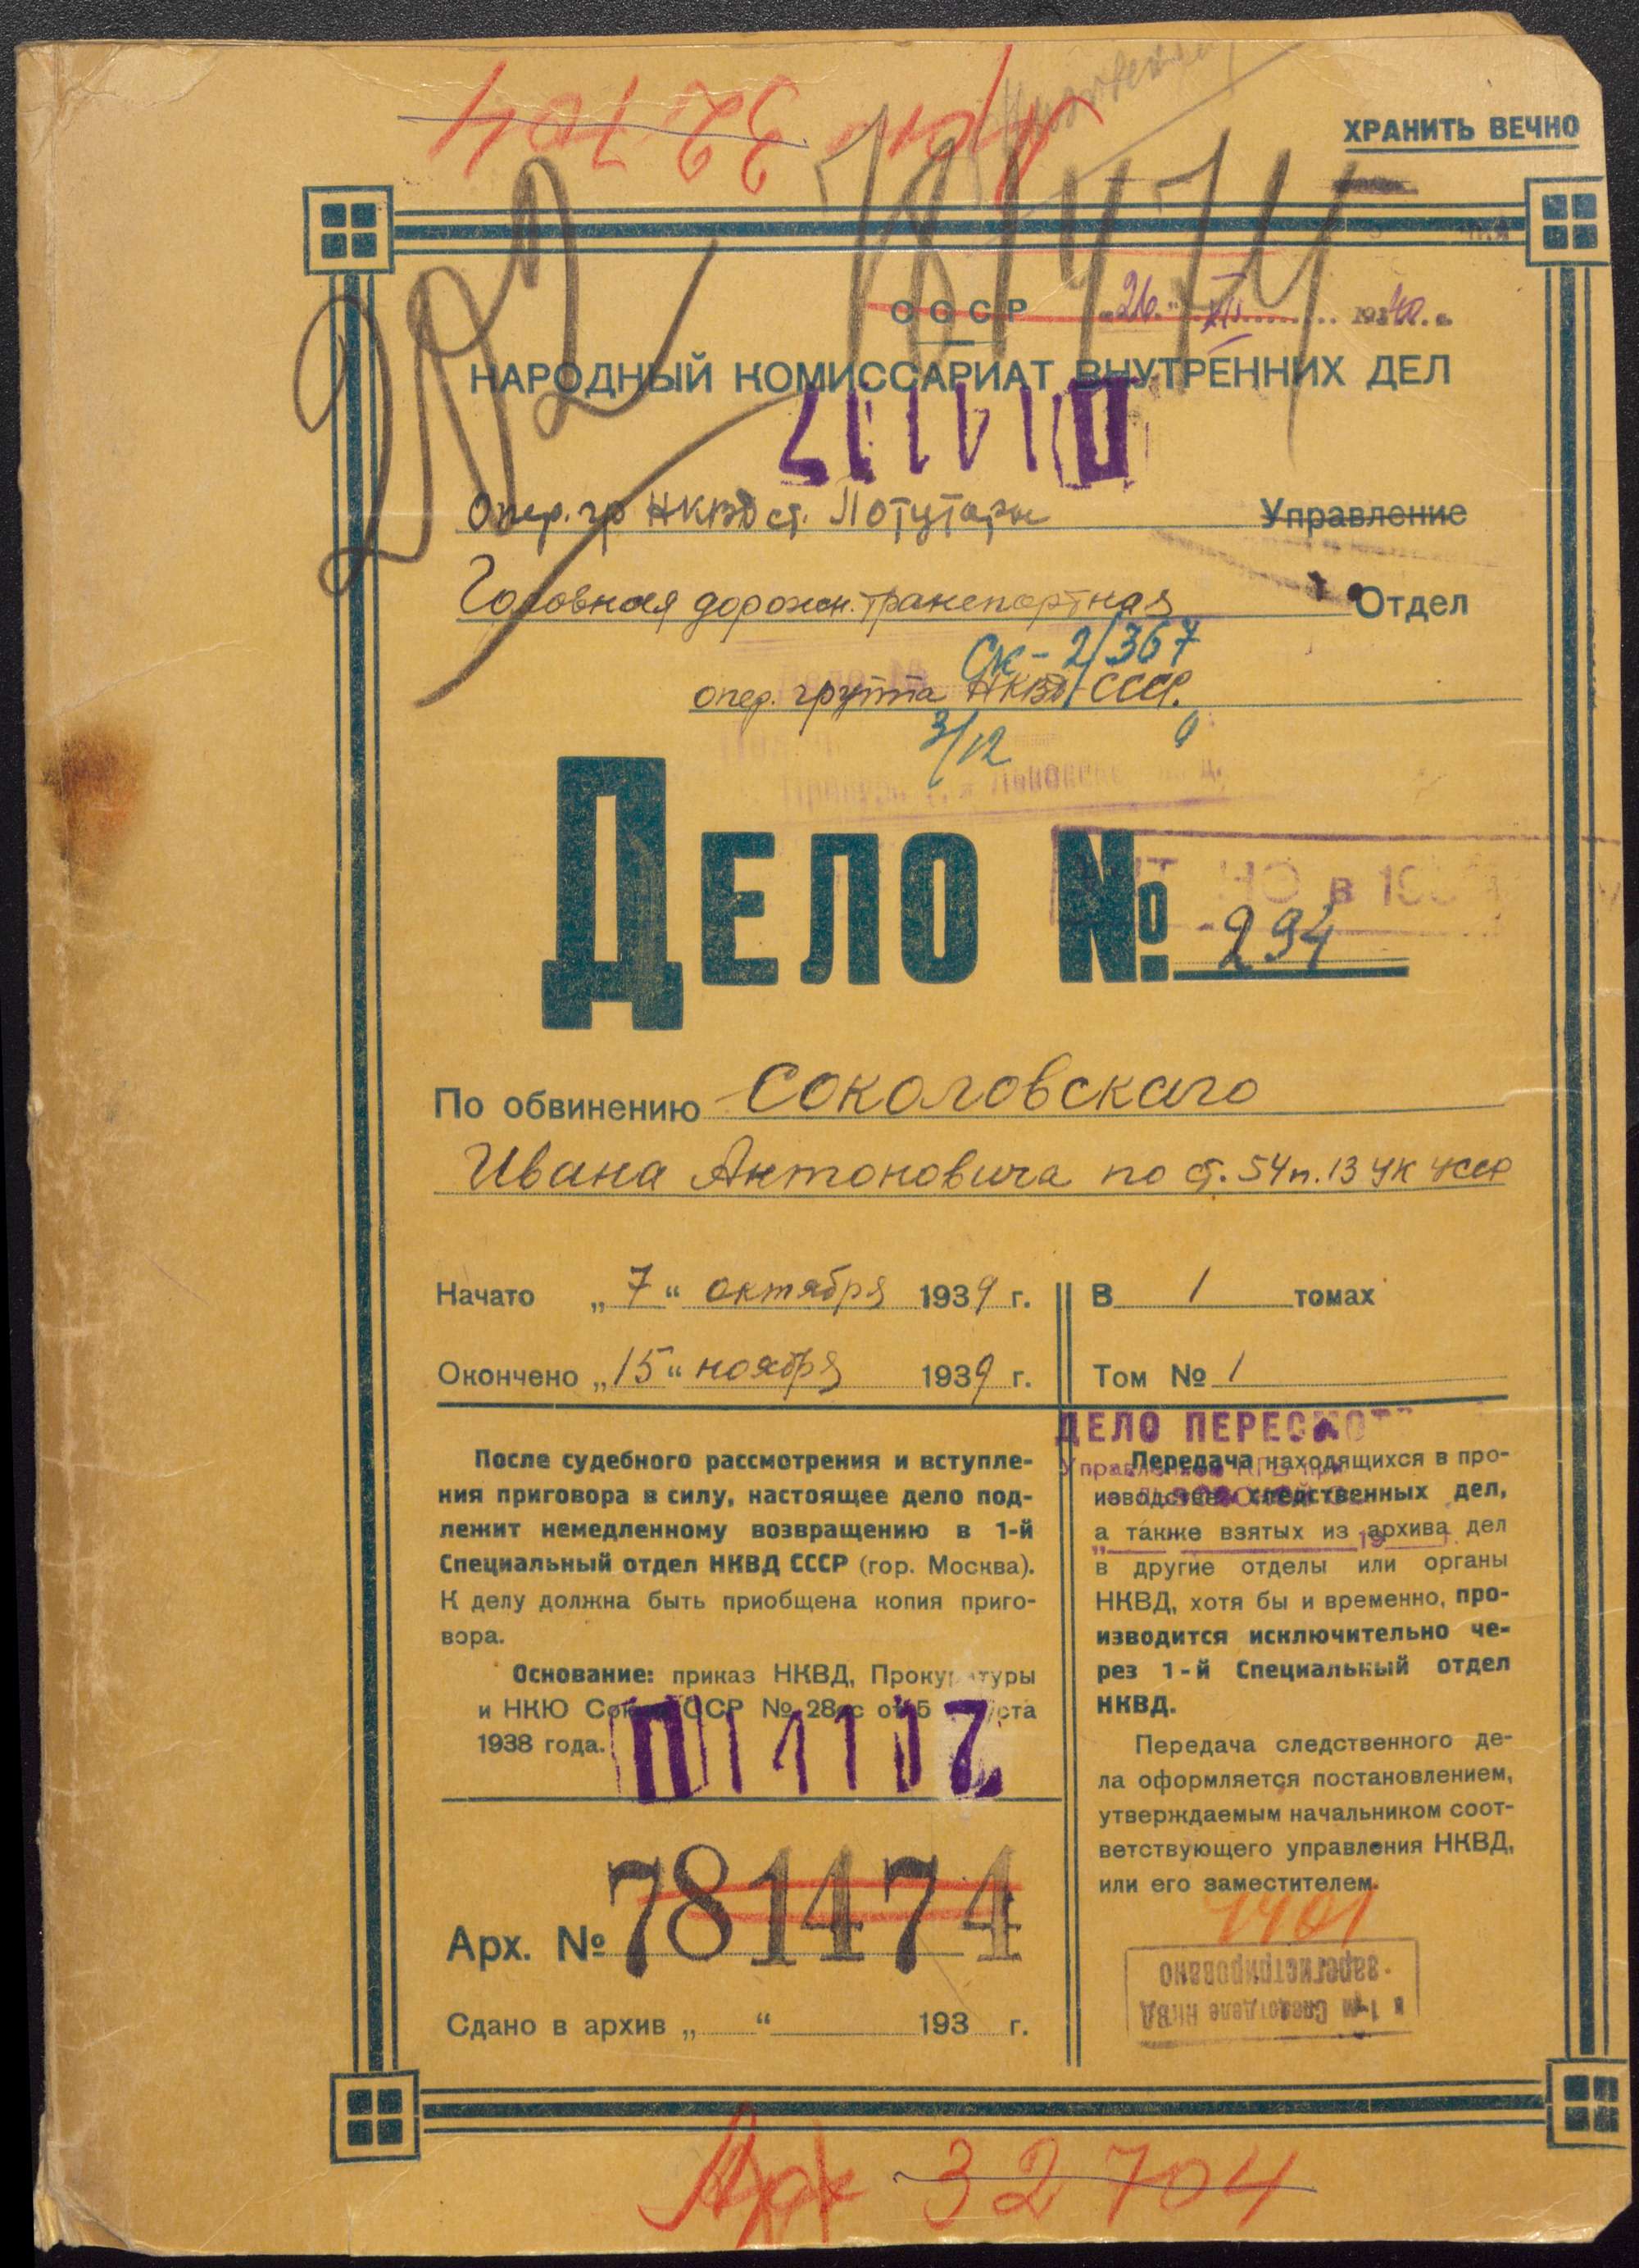 Арх 32704
ХРАНИТЬ ВЕЧНО
282
781474
СССР
„26.“ XII 1940. г.
НАРОДНЫЙ КОМИССАРИАТ ВНУТРЕННИХ ДЕЛ
П11117
Опер. гр НКВД ст. Потуторы Управление
Головная дорожн. транспортная Отдел
Ск-2/367
опер. группа НКВД СССР.
3/12
ДЕЛО № 294
По обвинению Соколовскаго
Ивана Антоновича по ст. 54 п. 13 УК УССР
Начато „7“ октября 1939 г.
В 1 томах
Окончено „15“ ноября 1939 г.
Том № 1
После судебного рассмотрения и вступле-
ния приговора в силу, настоящее дело под-
лежит немедленному возвращению в 1-й
Специальный отдел НКВД СССР (гор. Москва).
К делу должна быть приобщена копия приго-
вора.
Основание: приказ НКВД, Прокуратуры
и НКЮ Союза ССР №
1938 года.
П11117
Арх. № 781474
Сдано в архив „ “ 193 г.
ДЕЛО ПЕРЕСМОТ
Передача находящихся в про-
изводстве следственных дел,
а также взятых из архива дел
в другие отделы или органы
НКВД, хотя бы и временно, про-
изводится исключительно че-
рез 1-й Специальный отдел
НКВД.
Передача следственного де-
ла оформляется постановлением,
утверждаемым начальником соот-
ветствующего управления НКВД,
или его заместителем.
1401
в 1-м Спецотделе НКВД
зарегистрировано
Арх 32704